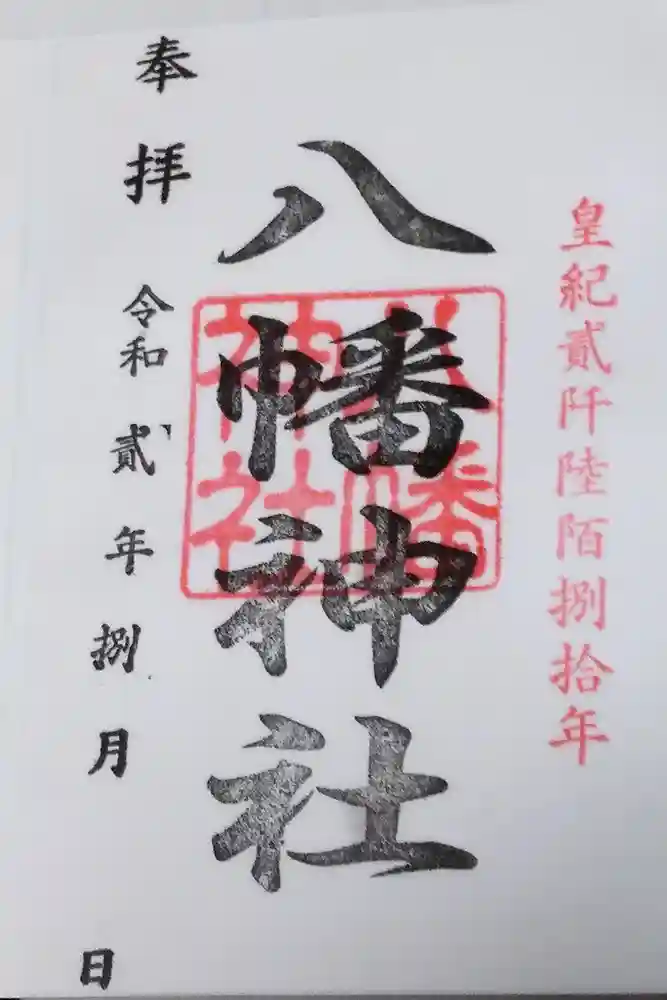 皇紀貳阡陸陌捌拾年
八幡神社
八幡
神社
奉拝
令和貳年捌月 日